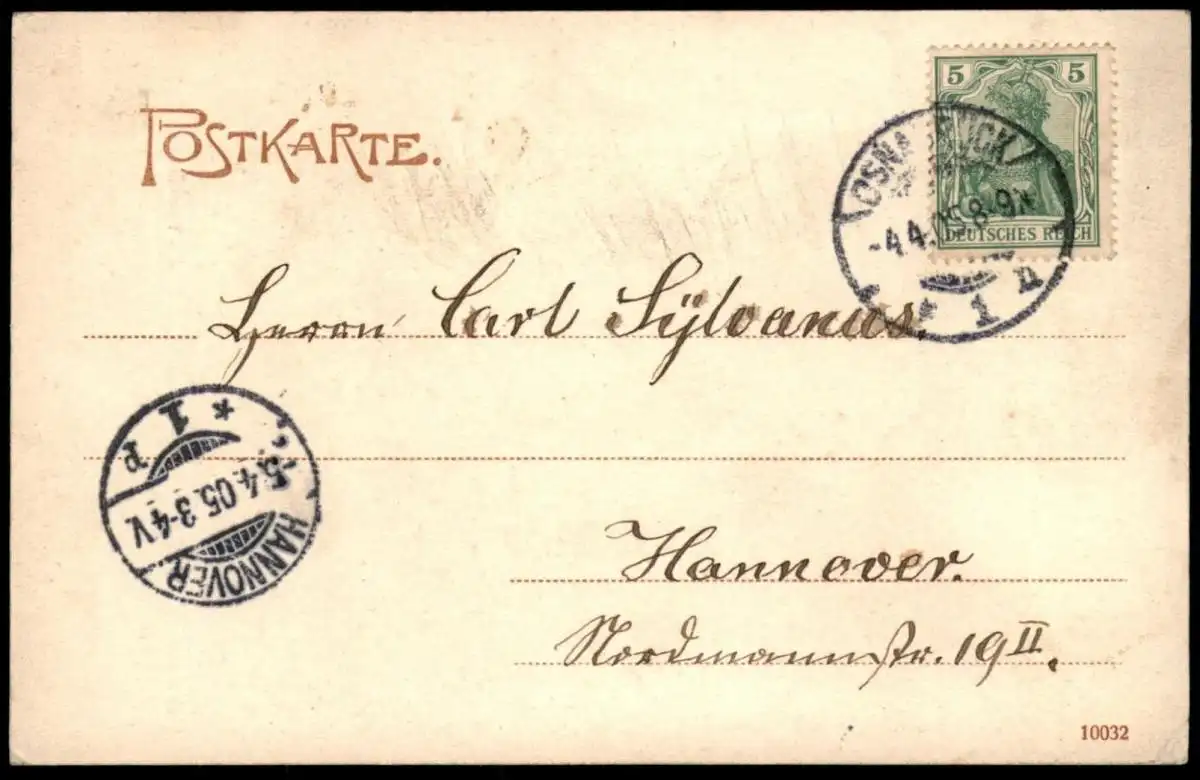 POSTKARTE.
5 5
DEUTSCHES REICH
OSNABRÜCK
-4.4.05.8-9N
* 1 n
Herrn Carl Sylvanus.
* 1 p
-5.4.05.3-4V.
HANNOVER
Hannover.
Nordmannstr. 19 II.
10032